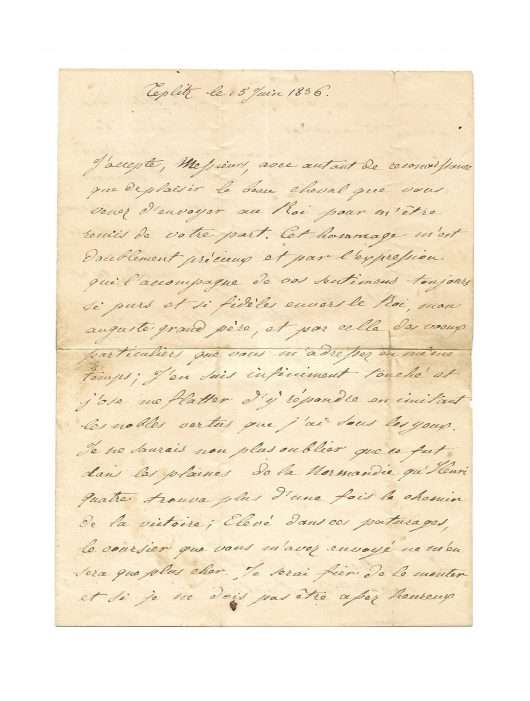 Teplitz le 15 Juin 1836.
J'accepte, Messieurs, avec autant de reconnoissance
que de plaisir le beau cheval que vous
venez d'envoyer au Roi pour m'être
remis de votre part. Cet hommage m'est
doublement précieux et par l'expression
qui l'accompagne de vos sentimens toujours
si purs et si fidèles envers le Roi, mon
auguste grand père, et par celle des voeux
particuliers que vous m'adressez en même
temps; J'en suis infiniment touché et
j'ose me flatter d'y répondre en imitant
les nobles vertus que j'ai sous les yeux.
Je ne saurais non plus oublier que ce fut
dans les plaines de la Normandie qu'Henri
quatre trouva plus d'une fois le chemin
de la victoire; Elevé dans ces paturages,
le coursier que vous m'avez envoyé ne m'en
sera que plus cher. Je serai fier de le monter
et si je ne dois pas être assez heureux